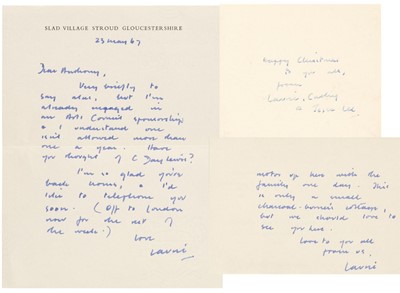 SLAD VILLAGE STROUD GLOUCESTERSHIRE
23 May 67
Dear Anthony,
Very briefly to
say alas, but I'm
already engaged in
an Arts Council sponsorship
& I understand one
isn't allowed more than
one a year. Have
you thought of C Day Lewis?
I'm so glad you're
back home, & I'd
like to telephone you
soon. (Off to London
now for the rest of
the week.)
Love
Laurie
Happy Christmas
to you all,
from
Laurie, Cathy
motor up here with the
family one day. This
is only a small
charcoal-burner's cottage,
but we should love to
see you here.
Love to you all
from us,
Laurie